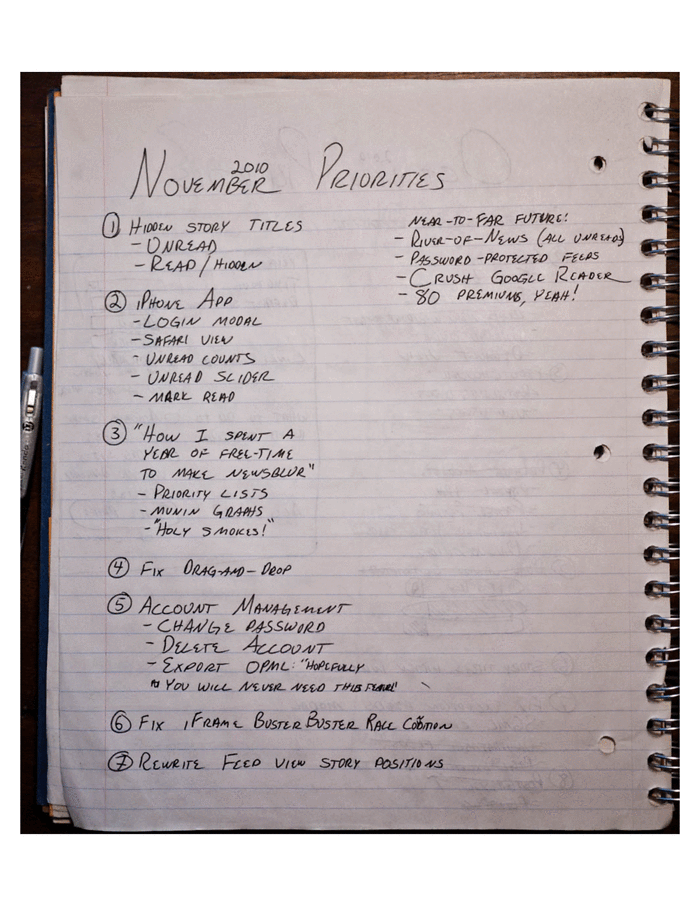 November 2010 Priorities
① Hidden story titles
- Unread
- Read/Hidden
② iPhone App
- Login modal
- Safari view
- Unread counts
- Unread slider
- Mark read
③ "How I spent a
year of free-time
to make NewsBlur"
- Priority lists
- Munin graphs
- "Holy smokes!"
④ Fix Drag-and-Drop
⑤ Account Management
- Change password
- Delete Account
- Export OPML: "Hopefully
you will never need this
⑥ Fix iFrame BusterBuster
⑦ Rewrite Feed view story positions
Near-to-far future!
- River-of-News (all unreads)
- Password-protected feeds
- Crush Google Reader
- 80 premiums, yeah!